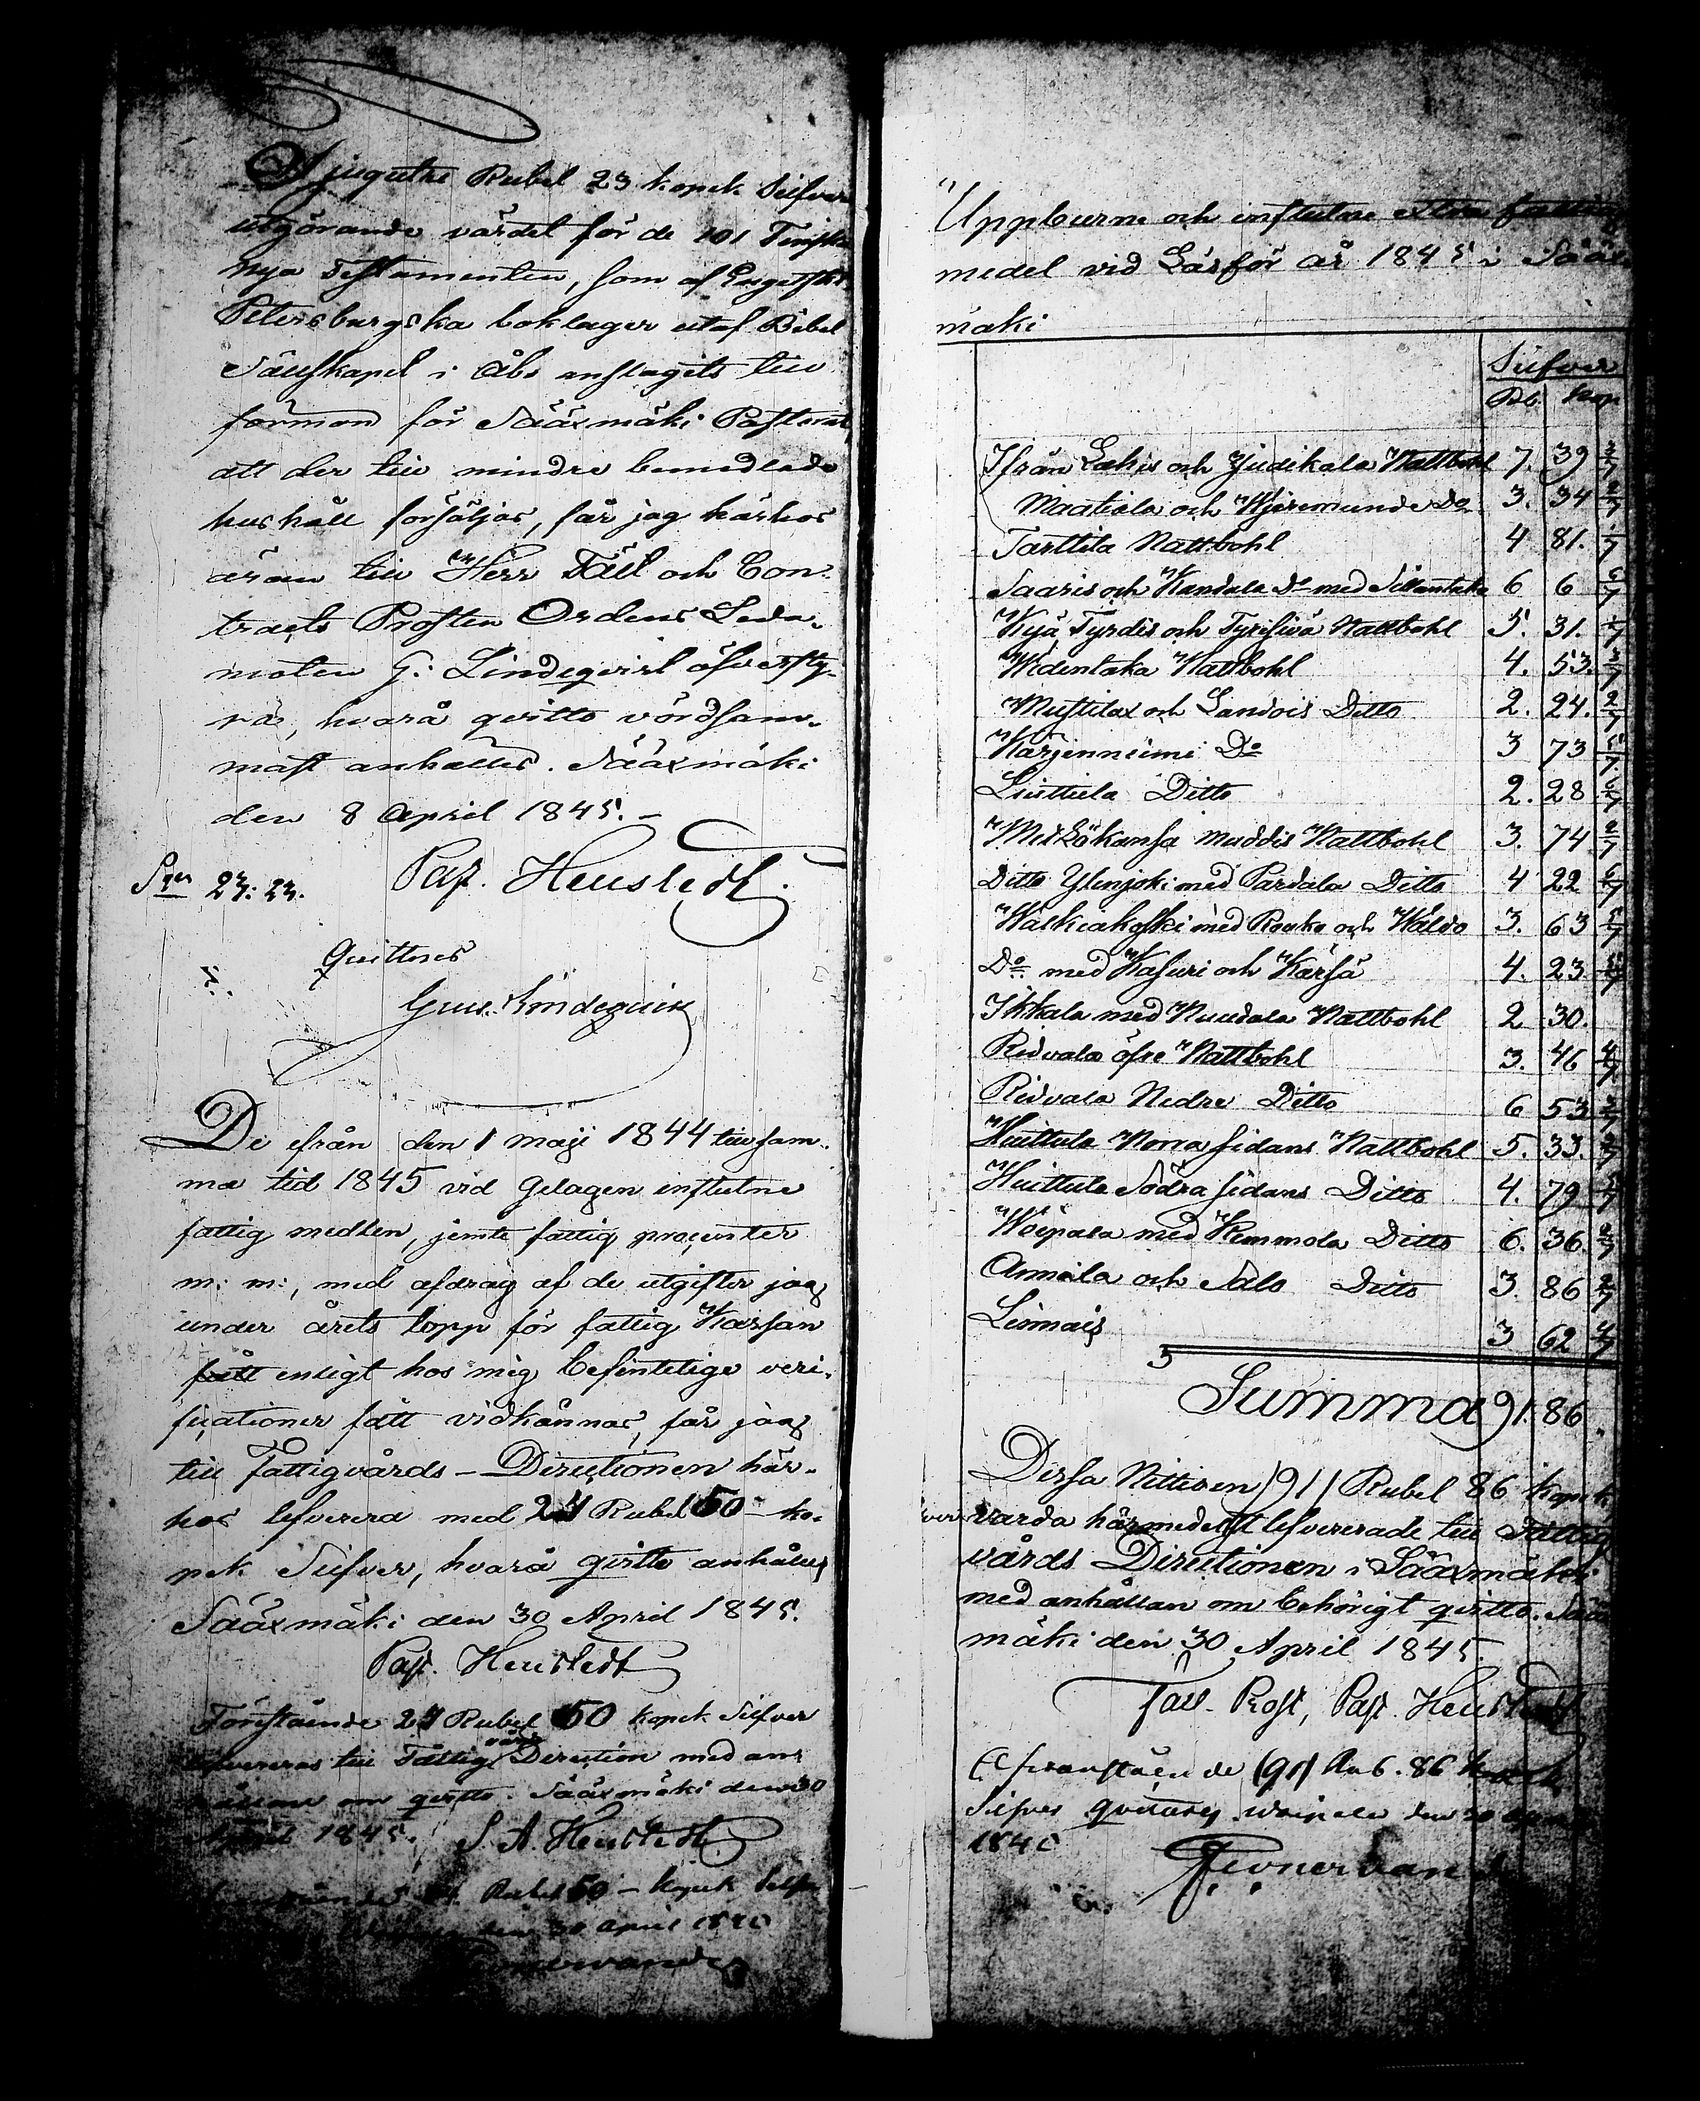 Tjugutre Rubel 23 kopek Silfver
utgörande värdet för de 101 Finska
nya Testamenten, som af
Petersburgska boklager utaf Bibel
Sällskapet i Åbo anslagits till
förmon för Sääxmäki Pastorat,
att der till mindre bemedlade
hushåll försäljas, får jag härhos
äran till Herr Fält och Con-
tracts Prosten Ordens Leda-
moten G: Lindeqvist öfversty-
ra, hvarå qvitto vördsam-
mast anhålles. Sääxmäki
den 8 April 1845. -
Sr 23: 23. Past. Heustedt.
Quitteras
Gust. Lindequist
De ifrån den 1 maji 1844 till sam-
ma tid 1845 vid Gelagen influtne
fattig medlen, jemte fattig procenter
m: m:, med afdrag af de utgifter jag
under årets lopp för fattig Kassan
fått enligt hos mig befintelige veri-
ficationer fått vidkännas, får jag
till Fattigvårds-Directionen här-
hos lefverera med 24 Rubel 50 - ko-
pek Silfver, hvarå qvitto anhålles
Sääxmäki den 30 April 1845.
Past. Heustedt
Förestående 24 Rubel 50 kopek Silfver
lefvereras till Fattigvårds Direction med an-
hållan om qvitto. Sääxmäki den 30
April 1845. S. A. Heustedt
Rubel 50 - kopek Silfver
den 30 April 1845
Uppburne och influtne extra fattig
medel vid Läsför år 1845 i Sääx
mäki
Silfver
Rb. Kop
Ifrån Lahis och Judikala Nattbohl 7. 39 3/7
Maatiala och Hjeremunde Do 3. 34 2/7
Tarttila Nattbohl 4 81. 1/7
Saaris och Kandala Do med Sillantaka 6 6 6/7
Kyä, Tyrdis och Tyrisivä Nattbohl 5. 31. 1/7
Widentaka Nattbohl 4. 53. 3/7
Mustilax och Landois Ditto 2. 24. 2/7
Karjenniemi Do 3 73 5/7
Liuttula Ditto 2. 28 6/7
Met Muddis Nattbohl 3. 74 2/7
Ditto Ylenjoki med Pardala Ditto 4 22 6/7
Walkiakoski med Rouko och Waldo 3. 63 5/7
Do med Kasuri och Kärsä 4. 23 5/7
Ikkala med Nuudala Nattbohl 2 30.
Ridvala öfre Nattbohl 3. 46 4/7
Ridvala Nedre Ditto 6 53 3/7
Huittula Norra sidans Nattbohl 5. 33. 2/7
Huittula Södra sidans Ditto 4. 79 5/7
Woipala med Kemmola Ditto 6. 36. 2/7
Annila och Salo Ditto 3. 86 2/7
Linnais 3 62 4/7
Summa 91: 86.
Dessa Nittioen /91/ Rubel 86 kopek
varda härmedelst lefvererade till Fattig
vårds Directionen i Sääxmäki
med anhållan om behörigt qvitto. Sääx
mäki den 30 April 1845.
Fält. Prost, Past. Heustedt
Ofvanstående (91) Rub. 86 kopek
Silfver qvitteras. Woipala den 30 April
1845